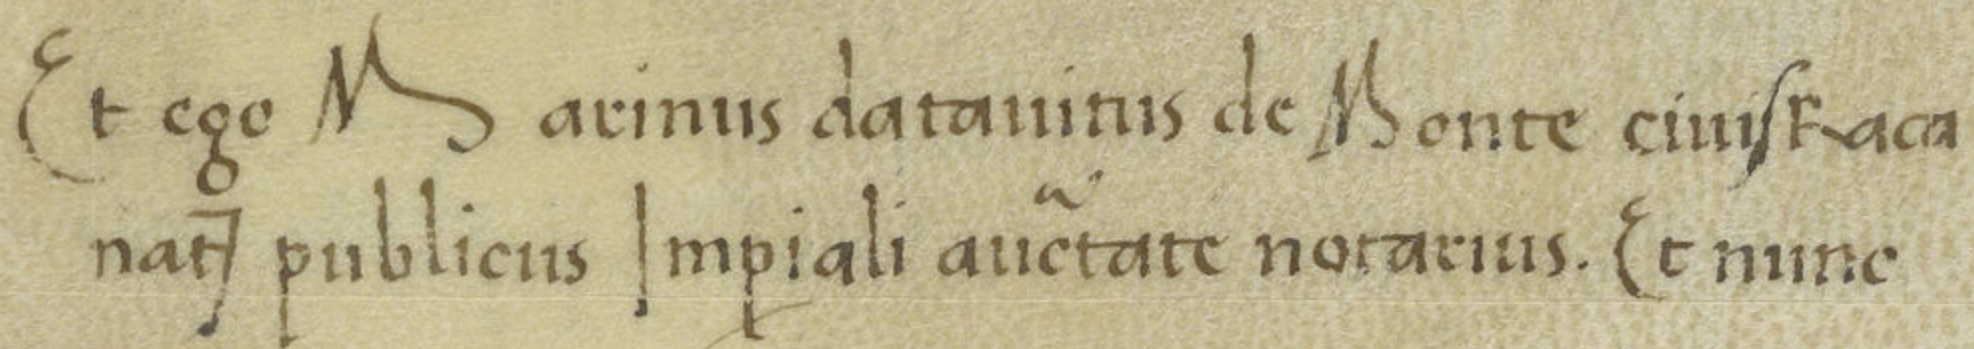 Et ego Marinus datauitus de Monte ciuis Raca
natj publicus Impiali auctate notarius. Et nunc